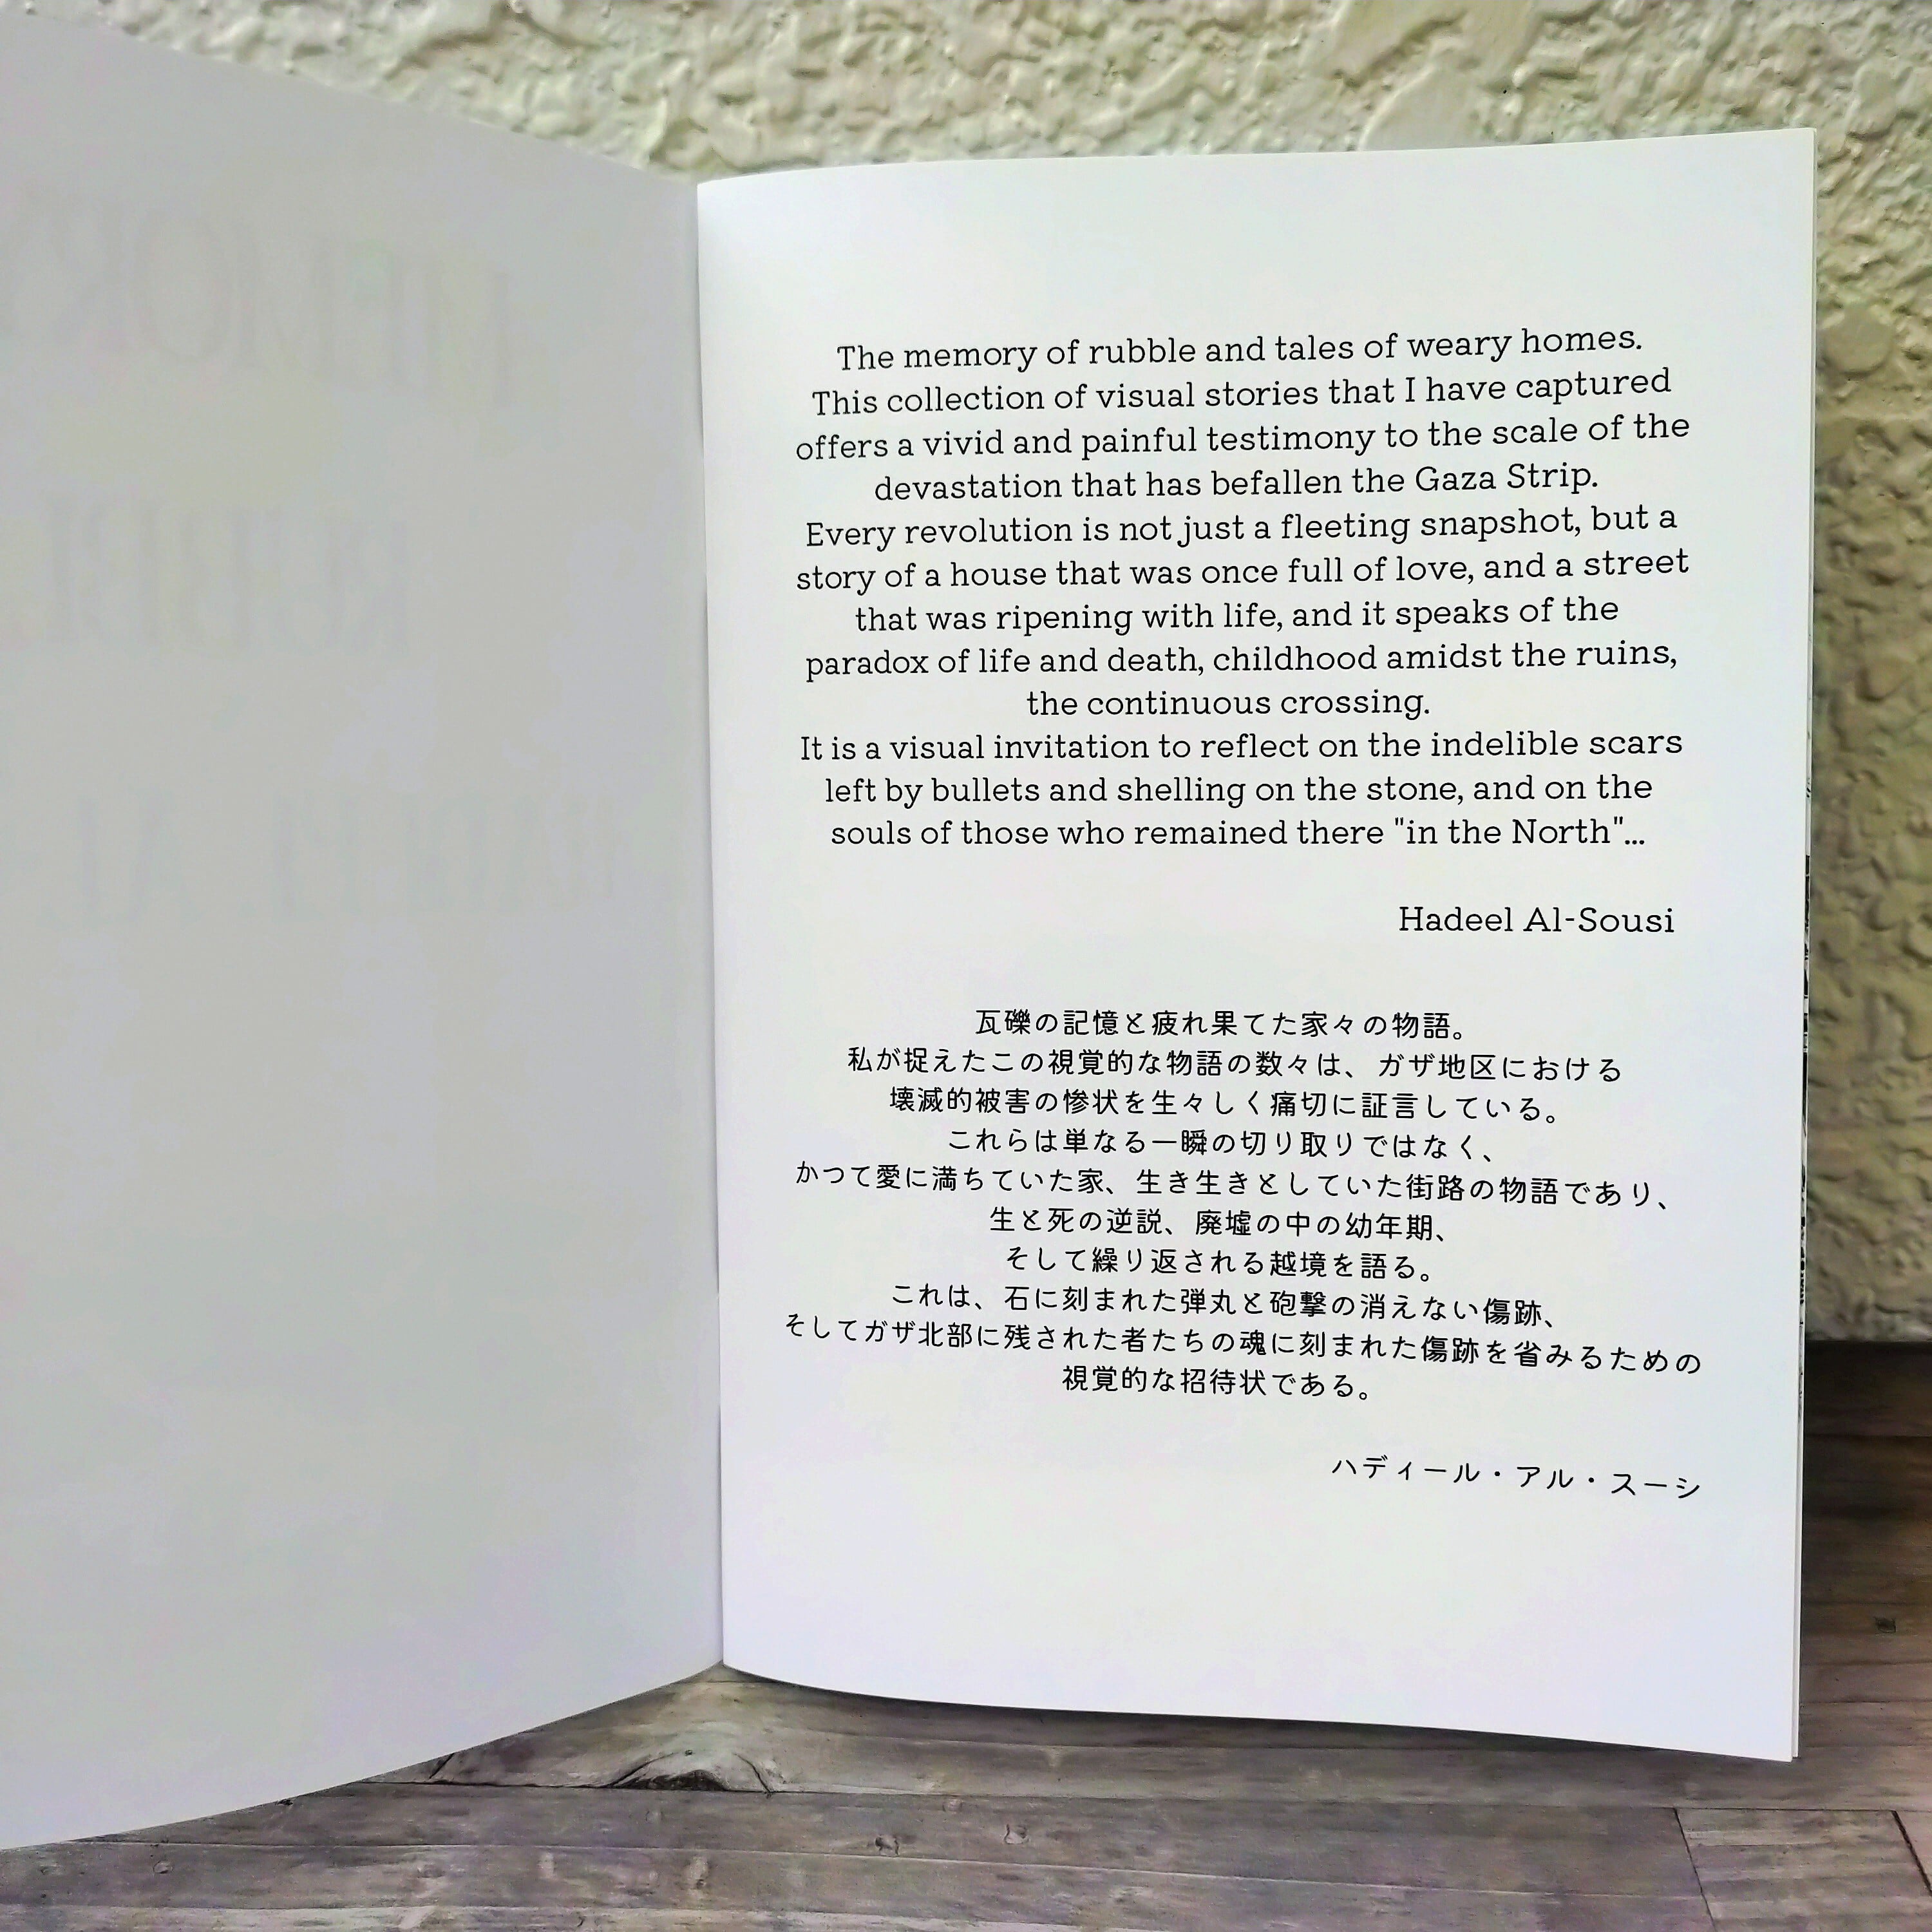 The memory of rubble and tales of weary homes.
This collection of visual stories that I have captured
offers a vivid and painful testimony to the scale of the
devastation that has befallen the Gaza Strip.
Every revolution is not just a fleeting snapshot, but a
story of a house that was once full of love, and a street
that was ripening with life, and it speaks of the
paradox of life and death, childhood amidst the ruins,
the continuous crossing.
It is a visual invitation to reflect on the indelible scars
left by bullets and shelling on the stone, and on the
souls of those who remained there "in the North"...
Hadeel Al-Sousi
瓦礫の記憶と疲れ果てた家々の物語。
私が捉えたこの視覚的な物語の数々は、ガザ地区における
壊滅的被害の惨状を生々しく痛切に証言している。
これらは単なる一瞬の切り取りではなく、
かつて愛に満ちていた家、生き生きとしていた街路の物語であり、
生と死の逆説、廃墟の中の幼年期、
そして繰り返される越境を語る。
これは、石に刻まれた弾丸と砲撃の消えない傷跡、
そしてガザ北部に残された者たちの魂に刻まれた傷跡を省みるための
視覚的な招待状である。
ハディール・アル・スーシ